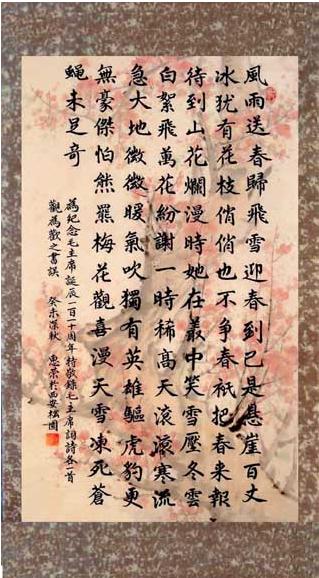 風雨送春歸飛雪迎春到已是懸崖百丈
冰猶有花枝俏俏也不争春祇把春来報
待到山花爛漫時她在叢中笑雪壓冬雲
白絮飛萬花紛謝一時稀高天滚滚寒流
急大地微微暖氣吹獨有英雄驅虎豹更
無豪傑怕熊羆梅花觀喜漫天雪凍死蒼
蠅未足奇
為紀念毛主席誕辰一百一十周年特敬錄毛主席詞詩各一首
觀為歡之書誤 癸未深秋 惠荣於西安松園